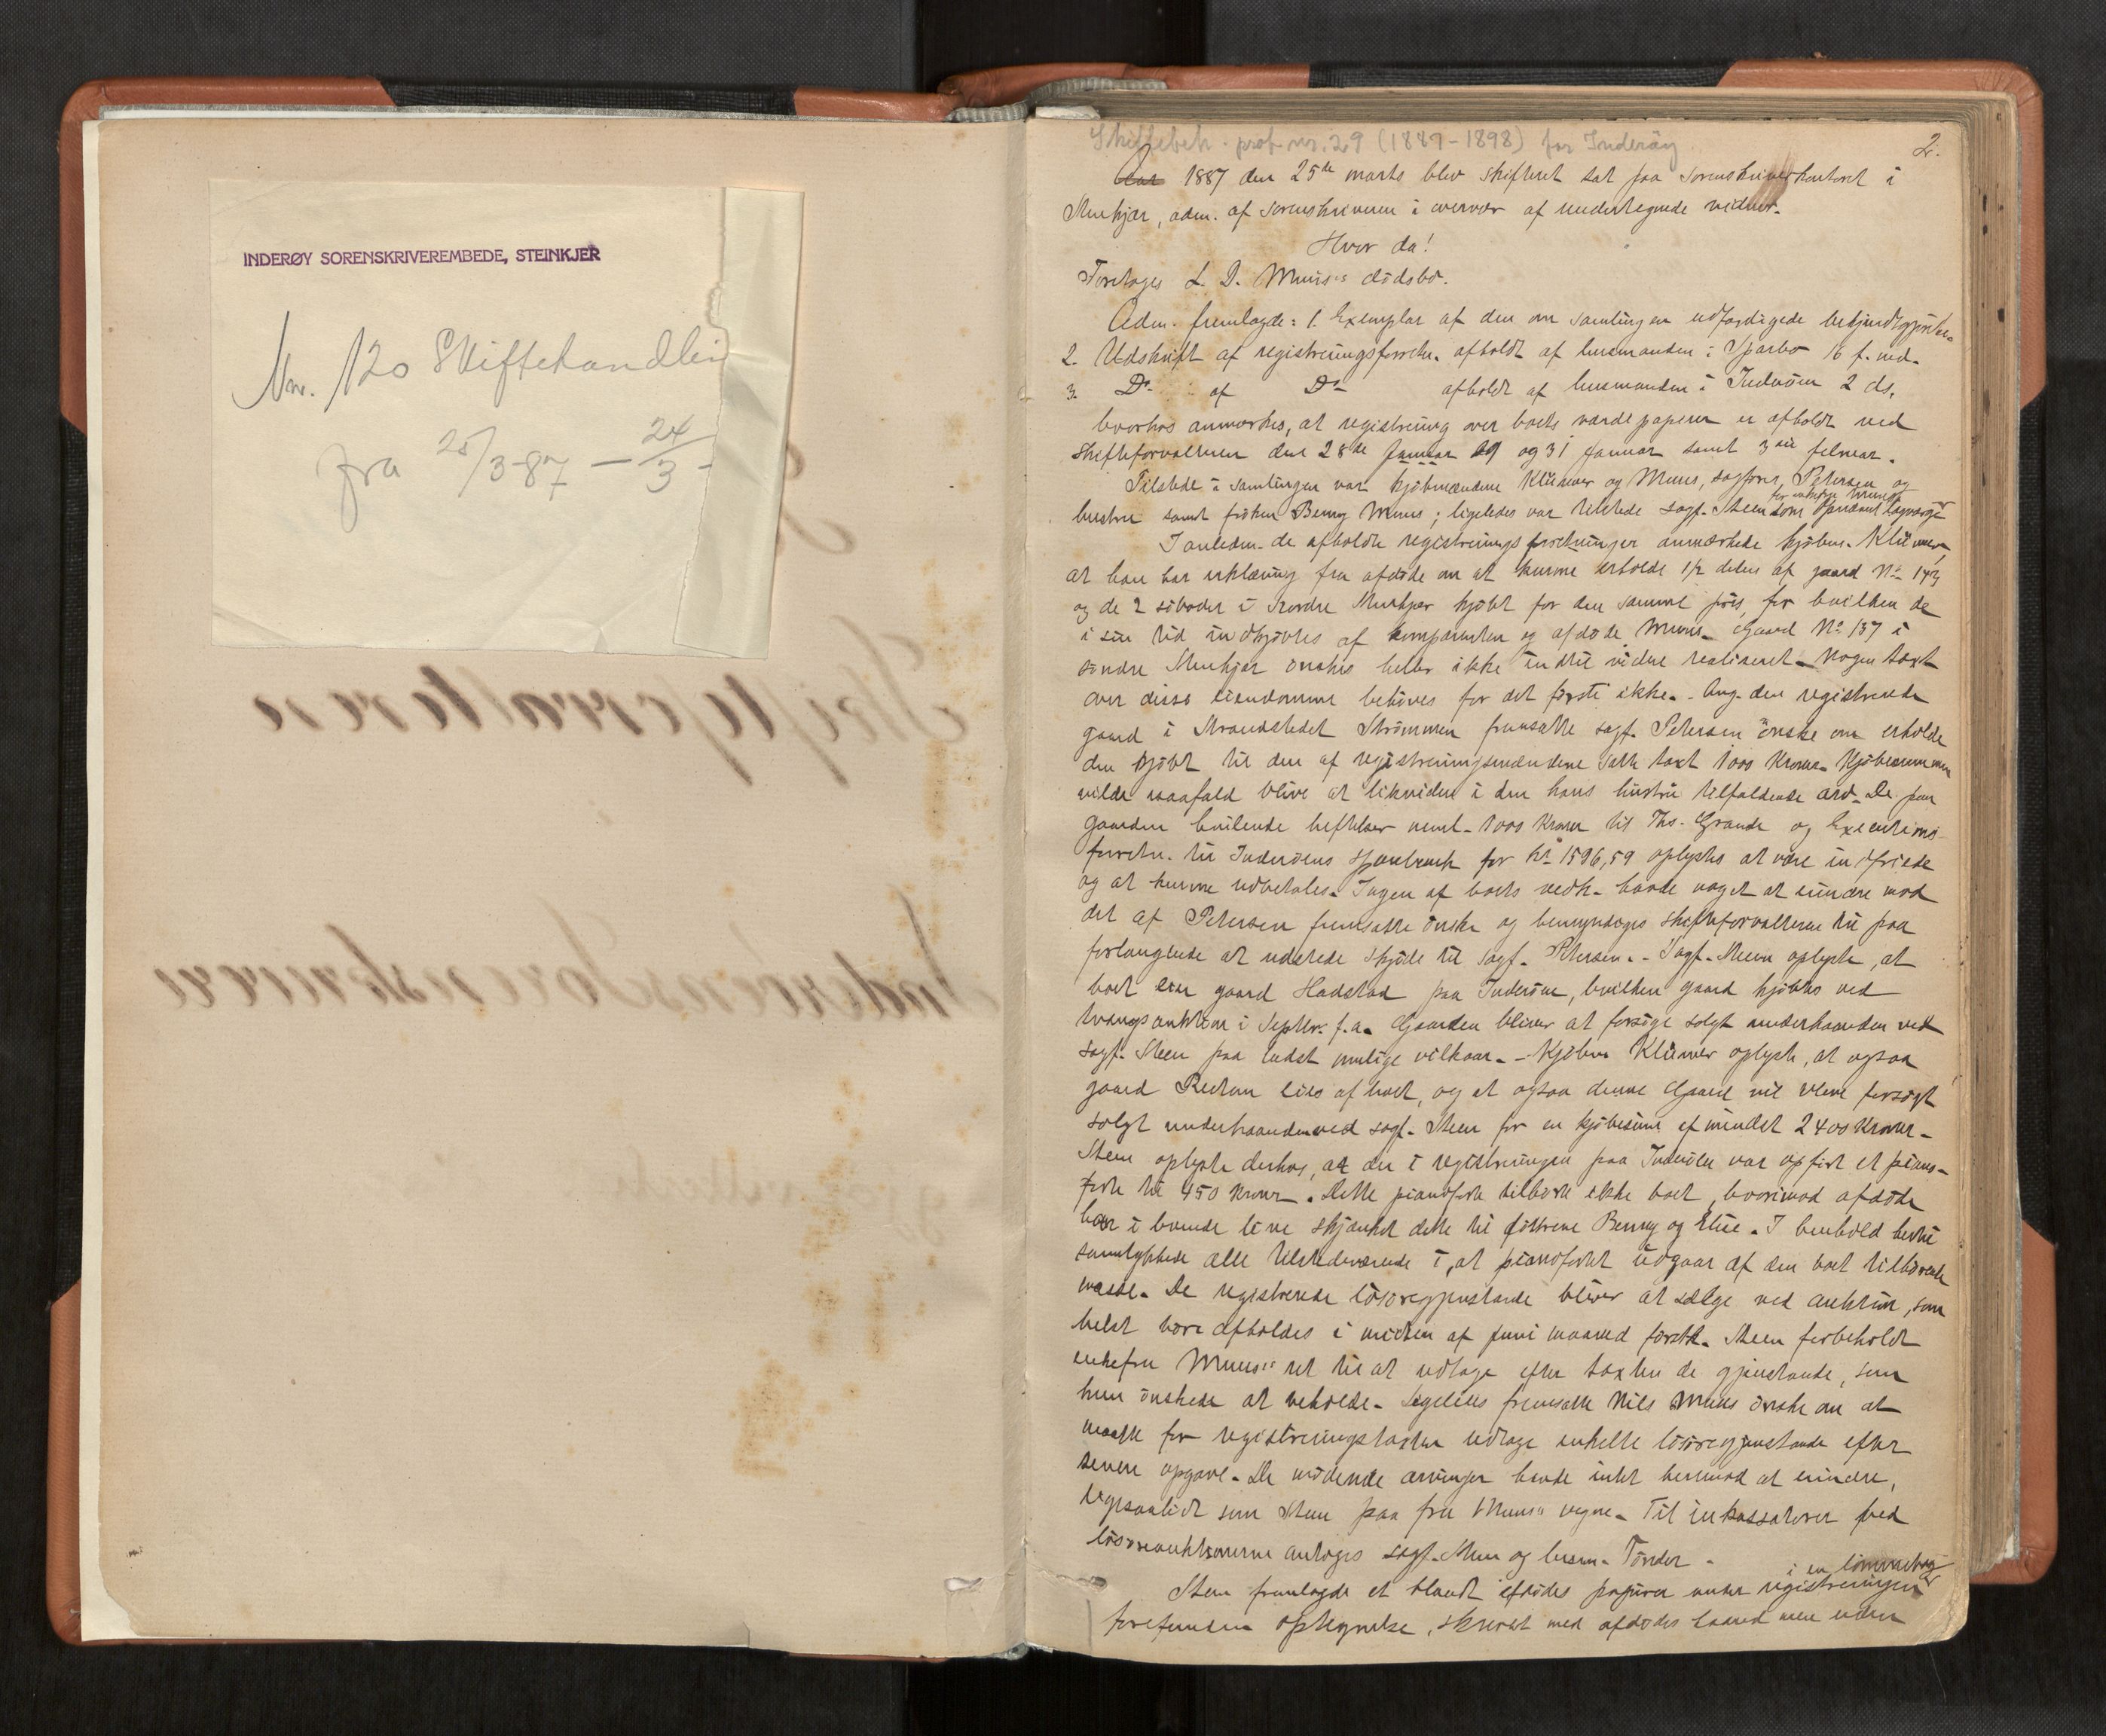 INDERØY SORENSKRIVEREMBEDE, STEINKJER
Nr. 120 Skiftehandlin
fra 25/3-87 — 24/3 -
Skiftebeh. prot. nr. 29 (1889-1898) for Inderøy
2.
Aar 1887 den 25de marts blev skifteret sat paa sorenskriverkontoret i
Stenkjær, adm. af sorenskriveren i overvær af undertegnede vidner.
Hvor da!
Foretoges L. D. Muus's dødsbo.
Adm. fremlagde: 1. Exemplar af den om samlingen udfærdigede bekjendtgjørelse
2. Udskrift af registreringsforretn. afholdt af lensmanden i Sparbo 16 f. md.
3. Do af Do afholdt af lensmanden i Inderøen 2 ds,
hvorhos anmærkes, at registrering over boets værdipapirer er afholdt ved
skifteforvalteren den 28de Januar 29 og 31 januar samt 3die februar.
Tilstede i samlingen var kjøbmændene Klüwer og Muus, sagfører Petersen og
hustru samt frøken Benny Muus; ligeledes var tilstede sagf. Steen som opnævnt lagværge
for enkefru Muus
I anledn. de afholdte registreringsforretninger anmærkede kjøbm. Klüwer,
at han har erklæring fra afdøde om at kunne erholde 1/2 delen af gaard No 143
og de 2 søboder i Nordre Stenkjær kjøbt for den samme pris, for hvilken de
i sin tid indkjøbtes af komparenten og afdøde Muus. Gaard No 137 i
søndre Stenkjær ønskes heller ikke indtil videre realiseret. Nogen taxt
over disse eiendomme behøves for det første ikke. - Ang. den registrerede
gaard i Strandstedet Strømmen fremsatte sagf. Petersen ønske om erholde
den kjøbt til den af registreringsmændene satte taxt 1000 Kroner. Kjøbesummen
vilde isaafald blive at likvidere i den hans hustru tilfaldende arv. De paa
gaarden hvilende heftelser neml. 1000 Kroner til Ths. Grande og Executions
forretn. til Inderøens sparebank for Kr 1596,59 oplystes at være indfriede
og at kunne udbetales. Ingen af boets vedk. havde noget at erindre mod
det af Petersen fremsatte ønske og bemyndiges skifteforvalteren til paa
forlangende at udstede skjøde til sagf. Petersen. - Sagf. Steen oplyste, at
boet eier gaard Hadstad paa Inderøen, hvilken gaard kjøbtes ved
tvangsauktion i Septbr. f.a. Gaarden bliver at forsøge solgt underhaanden ved
sagf. Steen paa bedst mulige vilkaar. - Kjøbm. Klüwer oplyste, at ogsaa
gaard eies af boet, og at ogsaa denne Gaard vil blive forsøgt
solgt underhaanden ved sagf. Steen for en kjøbesum af mindst 2400 Kroner.
Steen oplyste derhos, at der i registreringen paa Inderøen var opført et piano-
forte til 450 Kroner. Dette pianoforte tilhørte ikke boet, hvorimod afdøde
har i levende live skjænket dette til døttrene Benny og Elise. I henhold hertil
samtykkede alle tilstedeværende i, at pianofortet udgaar af den boet tilhørende
masse. De registrerede løsøregjenstande bliver at sælge ved auktion, som
helst bør afholdes i midten af juni maaned førstk. Steen forbeholdt
enkefru Muus's ret til at udtage efter taxten de gjenstande, som
hun ønskede at beholde. Ligeledes fremsatte Nils Muus ønske om at
maatte for registreringstaxten udtage enkelte løsøregjenstande efter
senere opgave. De mødende arvinger havde intet herimod at erindre,
ligesaalidt som Steen paa fru Muus's vegne. Til inkassatorer ved
løsøreauktionerne antoges sagf. Steen og lensm. Tønder -
Steen fremlagde et blandt afdødes papirer under registreringen
i en lommebog
forefunden optegnelse, skrevet med afdødes haand men uden